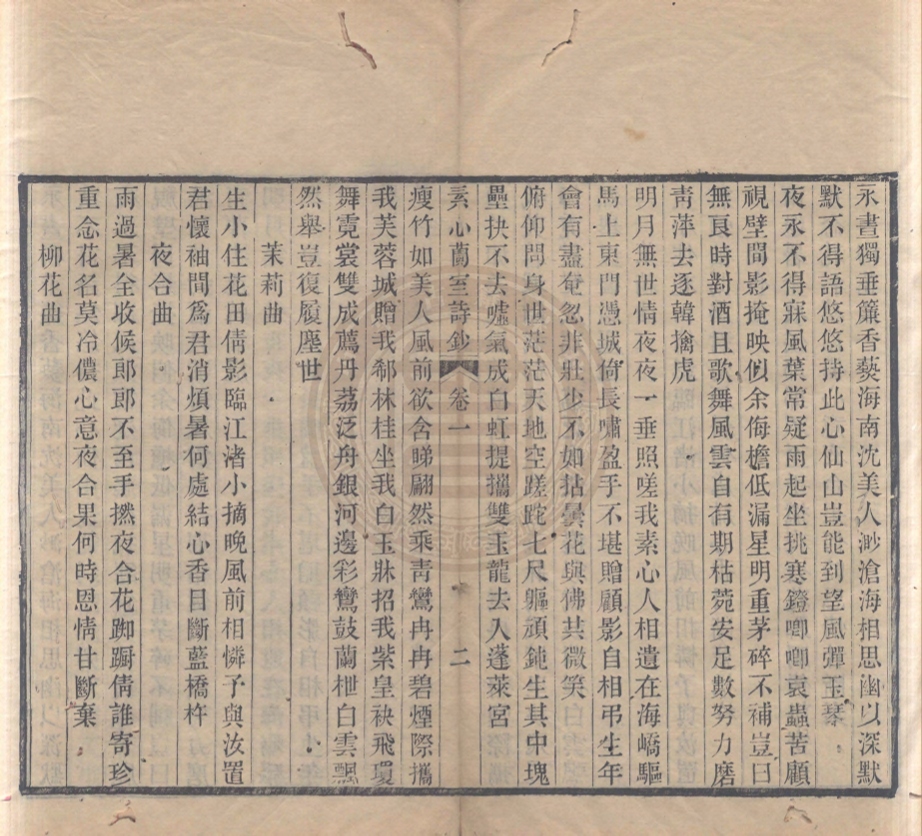 永晝獨垂簾香爇海南沈美人渺滄海相思幽以深默
默不得語悠悠持此心仙山豈能到望風彈玉琴
夜永不得寐風葉常疑雨起坐挑寒鐙唧唧哀蟲苦顧
視壁間影掩映似余侮檐低漏星明重茅碎不補豈曰
無良時對酒且歌舞風雲自有期枯菀安足數努力磨
靑萍去逐韓擒虎
明月無世情夜夜一垂照嗟我素心人相遺在海嶠驅
馬上東門憑城倚長嘯盈手不堪贈顧影自相弔生年
會有盡奄忽非壯少不如拈曇花與佛共微笑
俯仰問身世茫茫天地空蹉跎七尺軀頑鈍生其中塊
壘抉不去噓氣成白虹提攜雙玉龍去入蓬萊宮
素心蘭室詩鈔 卷一 二
瘦竹如美人風前欲含睇翩然乘靑鸞冉冉碧煙際攜
我芙蓉城贈我郗林桂坐我白玉牀招我紫皇袂飛瓊
舞霓裳雙成薦丹荔泛舟銀河邊彩鸞鼓蘭枻白雲飄
然舉豈復履塵世
茉莉曲
生小住花田倩影臨江渚小摘晚風前相憐予與汝置
君懷袖間爲君消煩暑何處結心香目斷藍橋杵
夜合曲
雨過暑全收候郎郎不至手撚夜合花踟躕倩誰寄珍
重念花名莫冷儂心意夜合果何時恩情甘斷棄
柳花曲